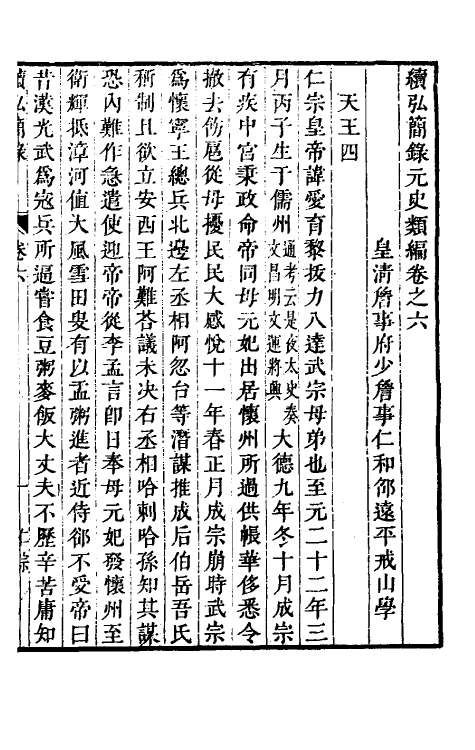 續弘簡錄元史類編卷之六
皇清詹事府少詹事仁和邵遠平戒山學
天王四
仁宗皇帝諱愛育黎拔力八達武宗母弟也至元二十二年三
月丙子生于儒州通考云是夜太史奏文昌明文運將興大德九年冬十月成宗
有疾中宮秉政命帝同母元妃出居懷州所過供帳華侈悉令
撤去仍扈從毋擾民民大感悅十一年春正月成宗崩時武宗
爲懷寧王總兵北邊左丞相阿忽台等潛謀推成后伯岳吾氏
稱制且欲立安西王阿難荅議未決右丞相哈剌哈孫知其謀
恐內難作急遣使迎帝帝從李孟言卽日奉母元妃發懷州至
衛輝抵漳河值大風雪田叟有以盂粥進者近侍郤不受帝曰
昔漢光武爲寇兵所逼嘗食豆粥麥飯大丈夫不歷辛苦庸知
續弘簡錄
卷六
一
仁宗